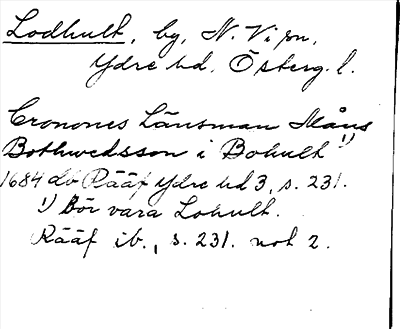 Lodhult, by, N. Vi sn,
Ydre hd. Österg. l.
Cronones Länsman Måns
Bothwedsson i Bohult 1)
1684 db Rääf Ydre hd 3, s. 231.
1) Bör vara Lohult.
Rääf ib., s. 231. not 2.